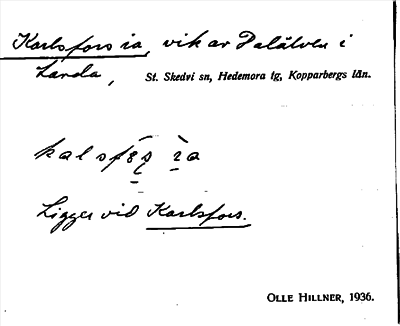 Karlsforsia, vik av Dalälven i
Landa, St. Skedvi sn, Hedemora tg, Kopparbergs län.
Ligger vid Karlsfors.
OLLE HILLNER, 1936.